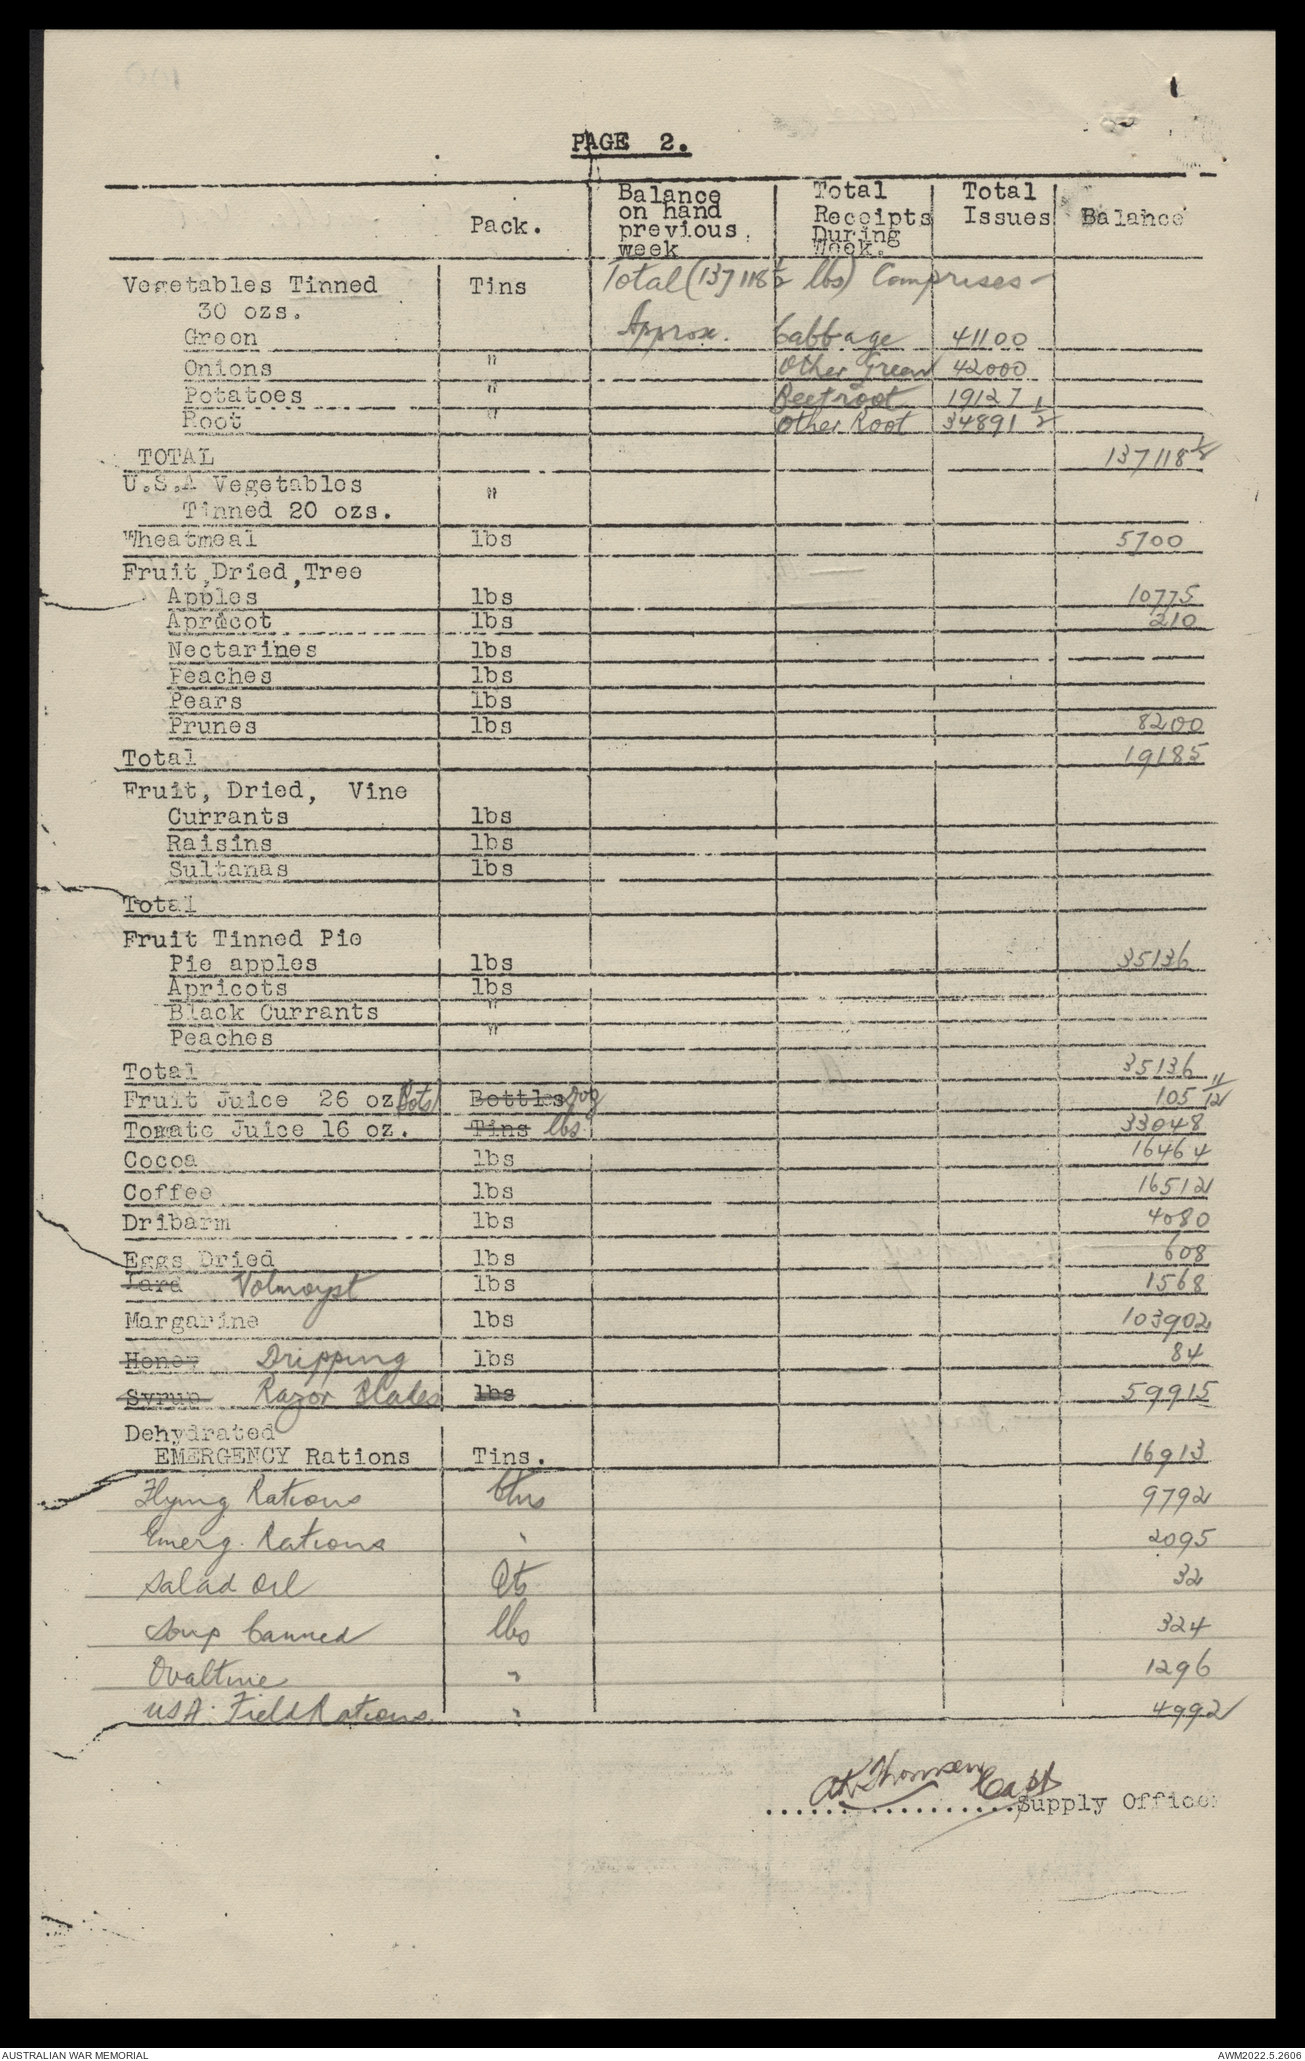 PAGE 2.
Pack. Balance on hand previous week Total Receipts During Week. Total Issues Balance
Vegetables Tinned Tins Total (137118½ lbs) Comprises -
30 ozs.
Green Approx. Cabbage 41100
Onions " Other Green 42000
Potatoes " Beetroot 19127
Root " Other Root 34891 ½
TOTAL 137118½
U.S.A Vegetables "
Tinned 20 ozs.
Wheatmeal lbs 5700
Fruit,Dried,Tree
Apples lbs 10775
Apricot lbs 210
Nectarines lbs
Peaches lbs
Pears lbs
Prunes lbs 8200
Total 19185
Fruit, Dried, Vine
Currants lbs
Raisins lbs
Sultanas lbs
Total
Fruit Tinned Pie
Pie apples lbs 35136
Apricots lbs
Black Currants "
Peaches "
Total 35136
Fruit Juice 26 oz Bots Bottles Doz 105 11/12
Tomato Juice 16 oz. Tins lbs 33048
Cocoa lbs 16464
Coffee lbs 16512
Dribarm lbs 4080
Eggs Dried lbs 608
Lard Volmoyst lbs 1568
Margarine lbs 103902
Honey Dripping lbs 84
Syrup Razor Blades lbs 59915
Dehydrated
EMERGENCY Rations Tins. 16913
Flying Rations Ctns 9792
Emerg. Rations " 2095
Salad Oil Qts 32
Soup Canned lbs 324
Ovaltine " 1296
USA. Field Rations. " 4992
AK Thomsen Capt
..................Supply Officer
AUSTRALIAN WAR MEMORIAL AWM2022.5.2606